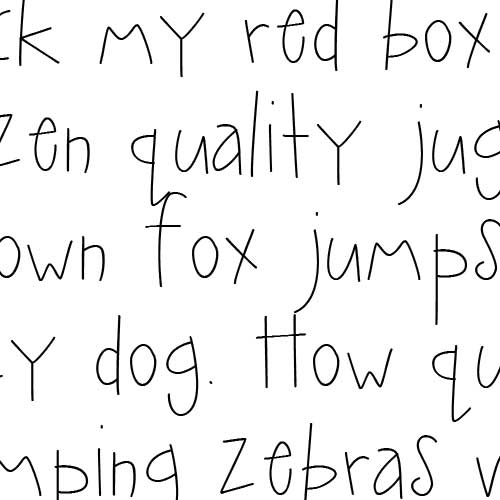 ck my red box
zen quality jug
own fox jumps
y dog. How qu
mping zebras v